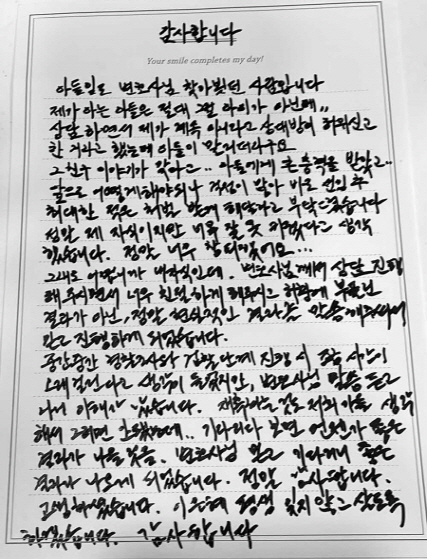 감사합니다
Your smile completes my day!
아들일로 변호사님 찾아뵀던 사람입니다
제가 아는 아들은 절대 그럴 아이가 아닌데,,
상담 하면서 제가 계속 아니라고 상대방이 허위신고
한 거라고 했는데 아들이 말리더라구요
그친구 이야기가 맞다고.. 아들에게 큰 충격을 받았고..
앞으로 어떻게 해야되나 걱정이 많아 바로 선임 후
최대한 적은 처벌 받게 해달라고 부탁드렸습니다
정말 제 자식이지만 너무 잘 못 키웠다고 생각
했습니다. 정말 너무 창피했어요...
그래도 어떡합니까 내자식인데. 변호사님께서 상담 진행
해주시면서 너무 친절하게 해주시고 허황에 부풀린
결과가 아닌, 정말 현실적인 결과를 말씀해주셔서
믿고 진행하게 되었습니다.
중간중간 경찰조사와 검찰단계 진행 시 조금 시간이
오래 걸린다고 생각이 들었지만, 변호사님 말씀 듣고
나서 이해가 됐습니다. 재촉하는 것도 저희 아들 생각
해서 그러면 안됐는데.. 기다리다 보면 언젠가 좋은
결과가 나올 것을. 변호사님 믿고 기다리니 좋은
결과가 나오게 되었습니다. 정말 감사합니다.
고생하셨습니다. 이 은혜 평생 잊지 않고 살도록
하겠습니다. 감사합니다